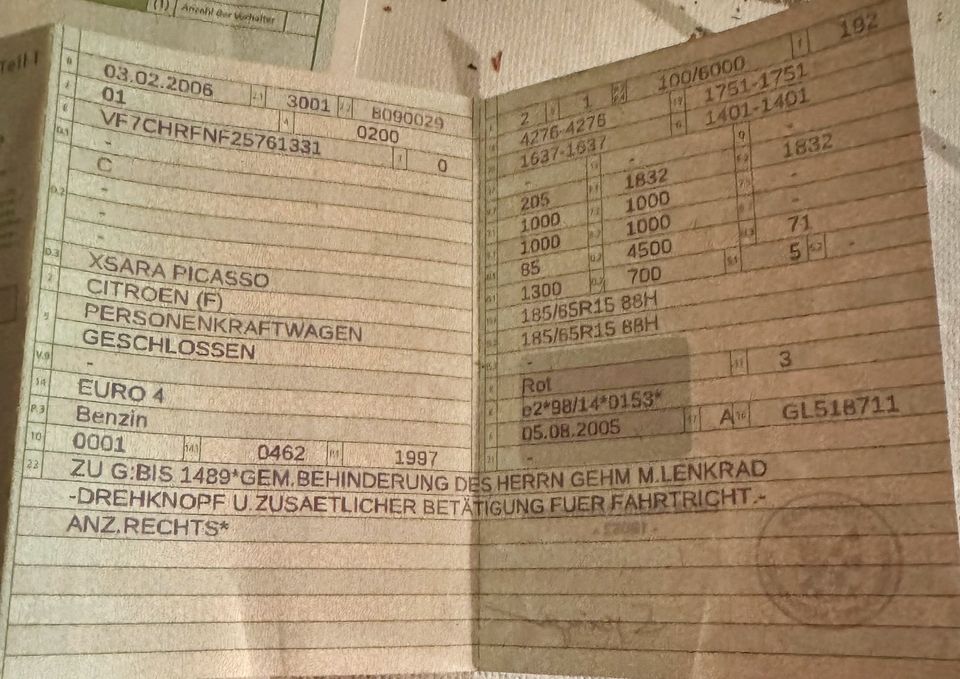 (1) Anzahl der Vorhalter
Teil I
B 03.02.2006 2.1 3001 2.2 8090029
J 01 4 0200
E VF7CHRFNF25761331 3 0
D.1 -
C
D.2 -
-
-
D.3 XSARA PICASSO
2 CITROEN (F)
5 PERSONENKRAFTWAGEN
GESCHLOSSEN
V.9 -
14 EURO 4
P.3 Benzin
10 0001 14.1 0462 P.1 1997
22 ZU G:BIS 1489*GEM.BEHINDERUNG DES HERRN GEHM M.LENKRAD
-DREHKNOPF U.ZUSAETLICHER BETÄTIGUNG FUER FAHRTRICHT.-
ANZ.RECHTS*
2 1 100/6000 192
4276-4276 1751-1751
1637-1637 1401-1401
- - -
205 1832 1832
1000 1000 -
1000 1000 -
85 4500 71
1300 700 5 -
185/65R15 88H
185/65R15 88H
- 3
Rot
e2*98/14*0153*
05.08.2005 A GL518711
-